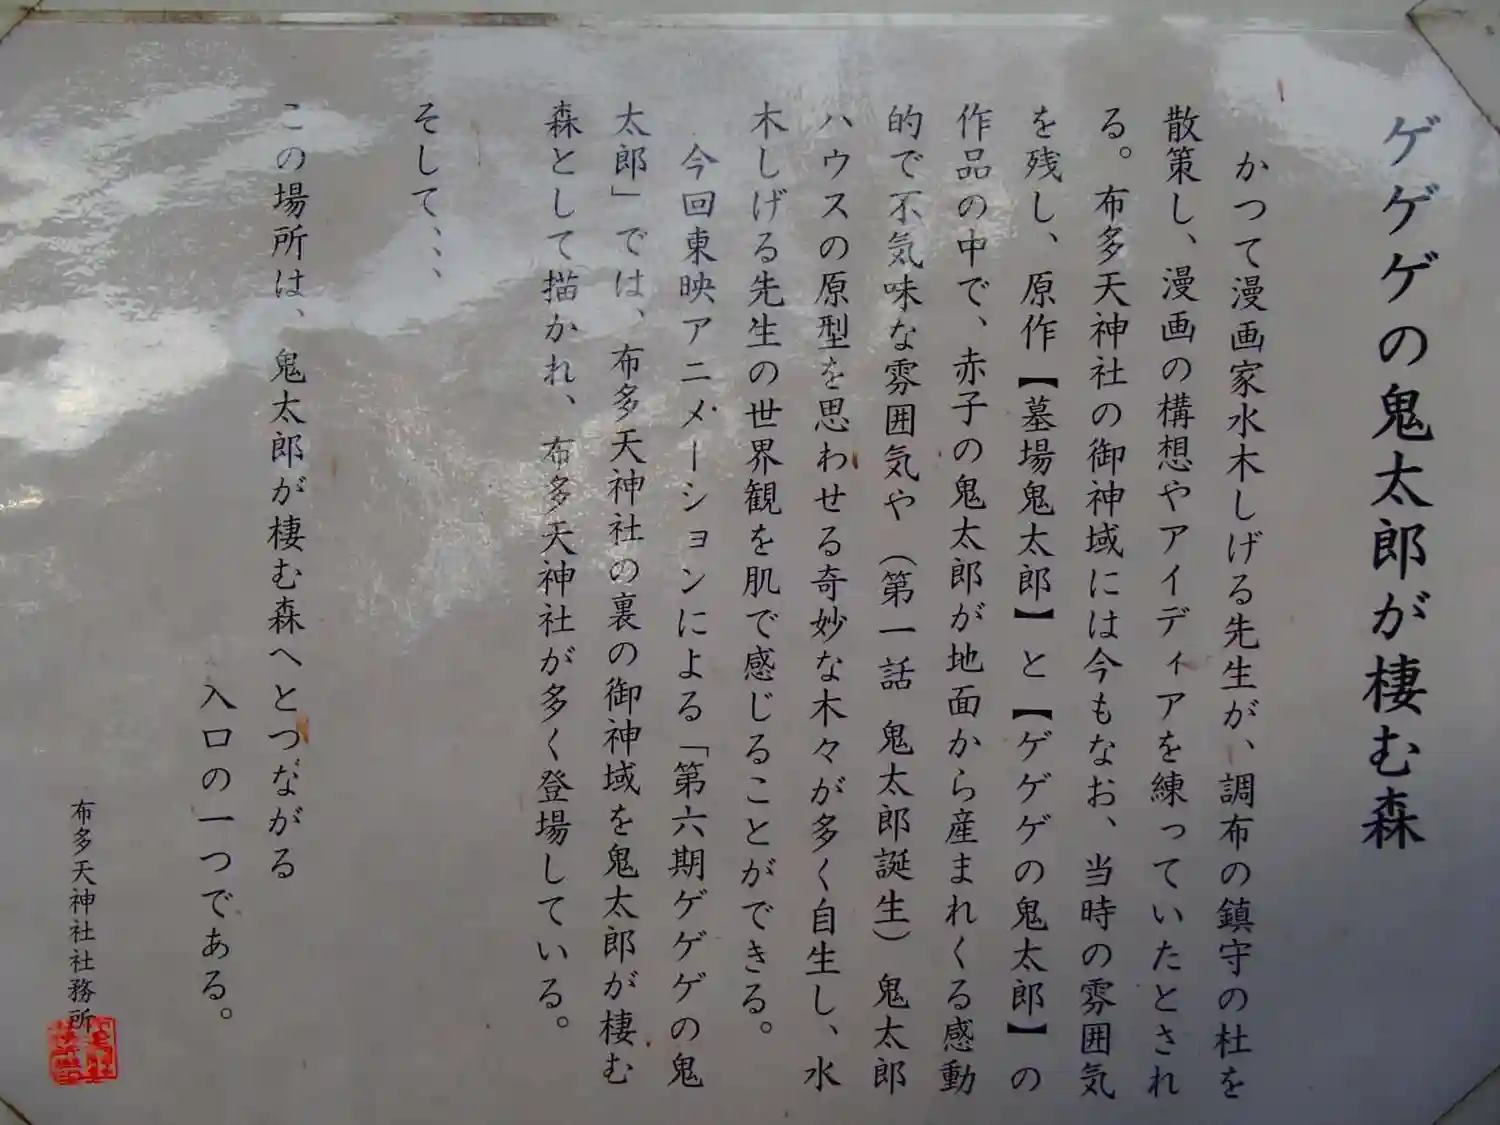 ゲゲゲの鬼太郎が棲む森
かつて漫画家水木しげる先生が、調布の鎮守の杜を
散策し、漫画の構想やアイディアを練っていたとされ
る。布多天神社の御神域には今もなお、当時の雰囲気
を残し、原作【墓場鬼太郎】と【ゲゲゲの鬼太郎】の
作品の中で、赤子の鬼太郎が地面から産まれくる感動
的で不気味な雰囲気や（第一話 鬼太郎誕生）鬼太郎
ハウスの原型を思わせる奇妙な木々が多く自生し、水
木しげる先生の世界観を肌で感じることができる。
今回東映アニメーションによる「第六期ゲゲゲの鬼
太郎」では、布多天神社の裏の御神域を鬼太郎が棲む
森として描かれ、布多天神社が多く登場している。
そして、、、
この場所は、鬼太郎が棲む森へとつながる
入口の一つである。
布多天神社社務所